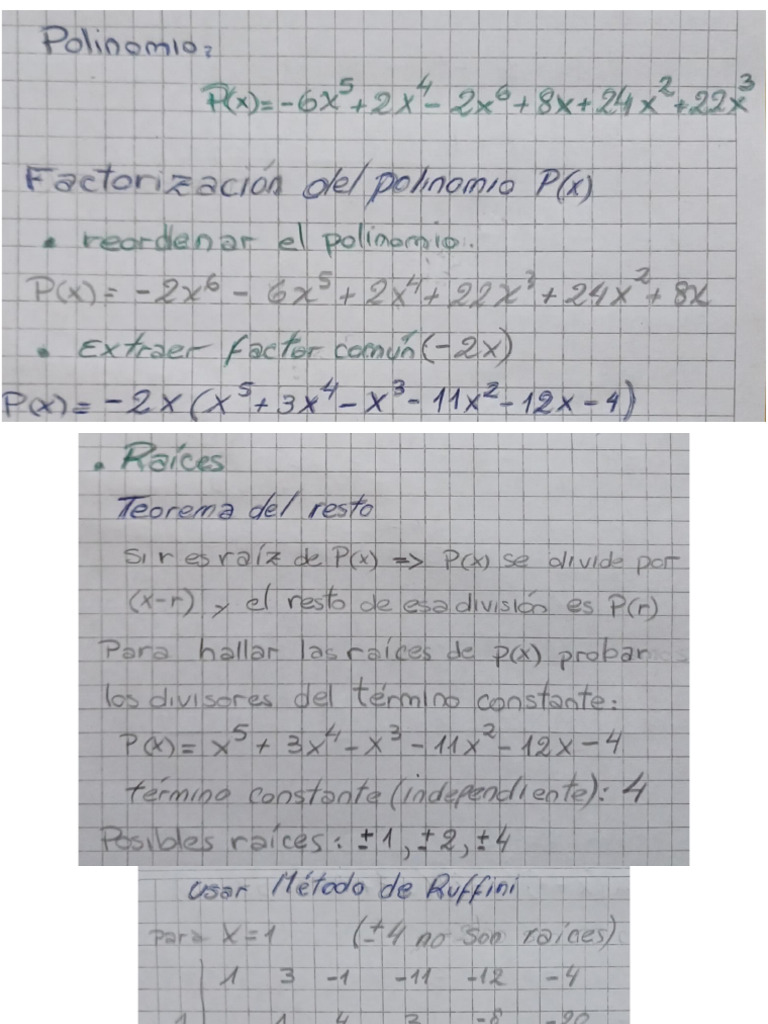 Polinomio:
P(x)= -6x⁵+2x⁴- 2x⁶+8x+24x²+22x³
Factorización del polinomio P(x)
• reordenar el polinomio.
P(x)= -2x⁶ - 6x⁵+2x⁴+22x³+24x²+8x
• Extraer factor común (-2x)
P(x)= -2x (x⁵+3x⁴-x³-11x²-12x-4)
• Raíces
Teorema del resto
Si r es raíz de P(x) => P(x) se divide por
(x-r) y el resto de esa división es P(r)
Para hallar las raíces de P(x) probar
los divisores del término constante:
P(x)= x⁵+3x⁴-x³-11x²-12x-4
término constante (independiente): 4
Posibles raíces: ±1, ±2, ±4
Usar Método de Ruffini
para x=1 (±4 no son raíces)
1 3 -1 -11 -12 -4
1 1 4 3 -8 -20